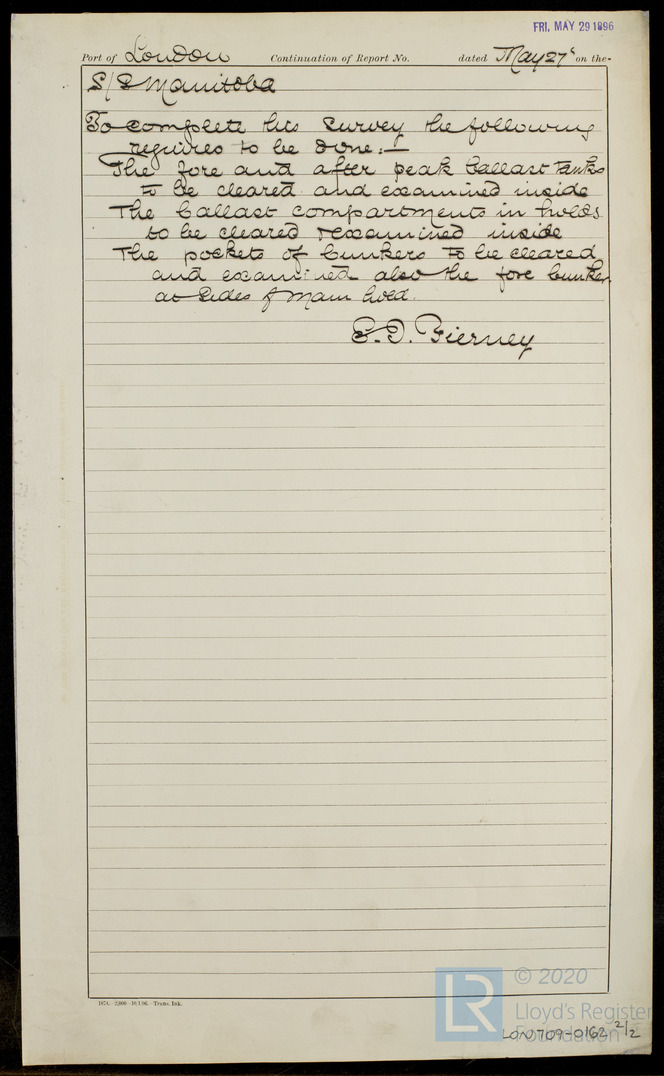 FRI, MAY 29 1896
Port of London Continuation of Report No. dated May 27 on the-
S/S Manitoba
To complete this survey the following
requires to be done:—
The fore and after peak ballast tanks
to be cleared and examined inside
The ballast compartments in holds
to be cleared & examined inside
The pockets of bunkers to be cleared
and examined also the fore bunker
at sides of main hold.
1874.—2,000—10/1/96.—Trans. Ink.
LR
© 2020
Lloyd's Register
Foundation
LON709-0162 2/2